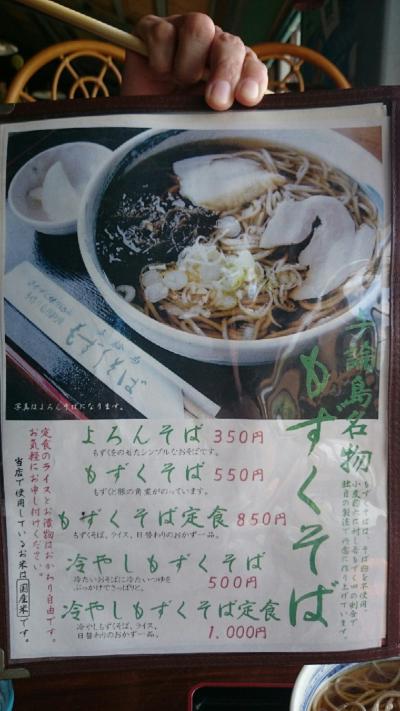 与論島名物
もずくそば
もずくそばは、そば粉を不使用。
小麦粉6に対し、生もずく4の割合で
独自の製法で丹念に作り上げています。
もずくそば
写真はよろんそばになります。
よろんそば 350円
もずくをのせたシンプルなおそばです。
もずくそば 550円
もずくと豚の角煮がのっています。
もずくそば定食 850円
もずくそば、ライス、日替わりのおかず一品。
冷やしもずくそば
冷たいおそばに冷たいつゆを
ぶっかけてさっぱりと。
500円
冷やしもずくそば定食
冷やしもずくそば、ライス、
日替わりのおかず一品。
1.000円
定食のライスとお漬物はおかわり自由です。
お気軽にお申し付けください。
当店で使用しているお米は国産米です。